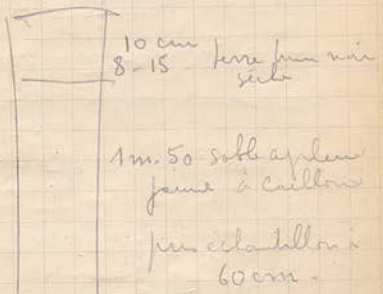 10 cm
8-15 terre brun noir
sèche
1m.50 sable argileux
jaune à caillou
pris échantillon à
60 cm.